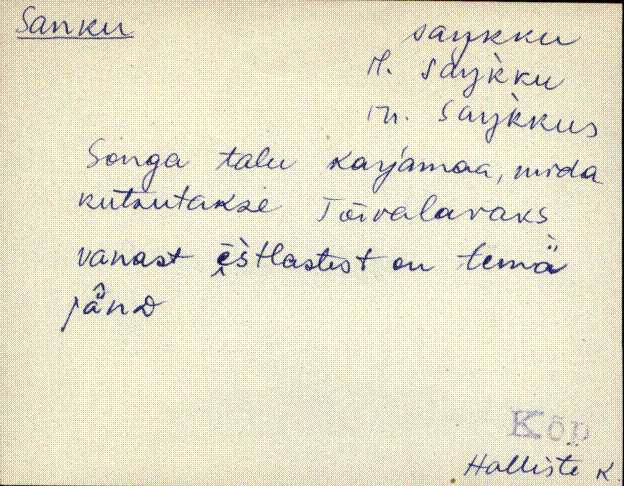 Sanku
saŋkku
n. saŋ̀kku
in. saŋ̀kkus
Songa talu karjamaa, mida
kutsutakse Tõrvalavaks
vanast ẽs̀tlastest on temä̀
jä̂nD
Kõp
Halliste K.